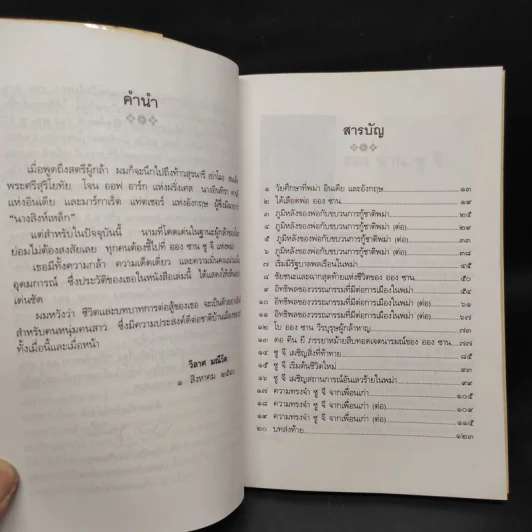 คำนำ
เมื่อพูดถึงสตรีผู้กล้า ผมก็จะนึกไปถึงท้าวสุรนารี (ย่าโม)
พระศรีสุริโยทัย โจน ออฟ อาร์ก แห่งฝรั่งเศส นางอินทิรา คานธี
แห่งอินเดีย และมาร์กาเร็ต แทตเชอร์ แห่งอังกฤษ ผู้ซึ่งมีฉายาว่า
"นางสิงห์เหล็ก"
แต่สำหรับในปัจจุบันนี้ นามที่โดดเด่นในฐานะผู้กล้าของโลก
ย่อมไม่ต้องสงสัยเลย ทุกคนต้องชี้ไปที่ ออง ซาน ซู จี แห่งพม่า
เธอมีทั้งความกล้า ความเด็ดเดี่ยว และความมั่นคงแน่วแน่ใน
อุดมการณ์ ซึ่งประวัติของเธอในหนังสือเล่มนี้ ได้แสดงให้เห็นอย่าง
เด่นชัด
ผมหวังว่า ชีวิตและบทบาทการต่อสู้ของเธอ จะเป็นตัวอย่างอันดี
สำหรับคนหนุ่มคนสาว ซึ่งมีความประสงค์ดีต่อชาติบ้านเมืองของตน
ทั้งเมื่อนี้และเมื่อหน้า
วิลาศ มณีวัต
๑ สิงหาคม
สารบัญ
๑ วัยศึกษาที่พม่า อินเดีย และอังกฤษ ๑๓
๒ ได้เลือดพ่อ ออง ซาน ๑๙
๓ ภูมิหลังของพ่อกับขบวนการกู้ชาติพม่า ๒๕
๔ ภูมิหลังของพ่อกับขบวนการกู้ชาติพม่า (ต่อ) ๓๑
๕ ภูมิหลังของพ่อกับขบวนการกู้ชาติพม่า (ต่อ) ๓๓
๖ ภูมิหลังของพ่อกับขบวนการกู้ชาติพม่า (ต่อ) ๓๘
๗ เริ่มมีรัฐบาลพลเรือนในพม่า ๔๕
๘ ชัยชนะและฉากสุดท้ายแห่งชีวิตของ ออง ซาน ๕๐
๙ อิทธิพลของวรรณกรรมที่มีต่อการเมืองในพม่า ๕๖
๑๐ อิทธิพลของวรรณกรรมที่มีต่อการเมืองในพม่า (ต่อ) ๖๑
๑๑ อิทธิพลของวรรณกรรมที่มีต่อการเมืองในพม่า (ต่อ) ๖๗
๑๒ โบ ออง ซาน วีรบุรุษผู้กล้าหาญ ๗๓
๑๓ ดอ คิน ยี ภรรยาหม้ายสืบทอดเจตนารมณ์ของ ออง ซาน ๗๙
๑๔ ซู จี เผชิญสิ่งที่ท้าทาย ๘๕
๑๕ ซู จี เริ่มต้นชีวิตใหม่ ๙๓
๑๖ ซู จี เผชิญสถานการณ์อันเลวร้ายในพม่า ๙๙
๑๗ ความทรงจำ ซู จี จากเพื่อนเก่า ๑๐๕
๑๘ ความทรงจำ ซู จี จากเพื่อนเก่า (ต่อ) ๑๐๙
๑๙ ความทรงจำ ซู จี จากเพื่อนเก่า (ต่อ) ๑๑๕
๒๐ บทส่งท้าย ๑๒๓